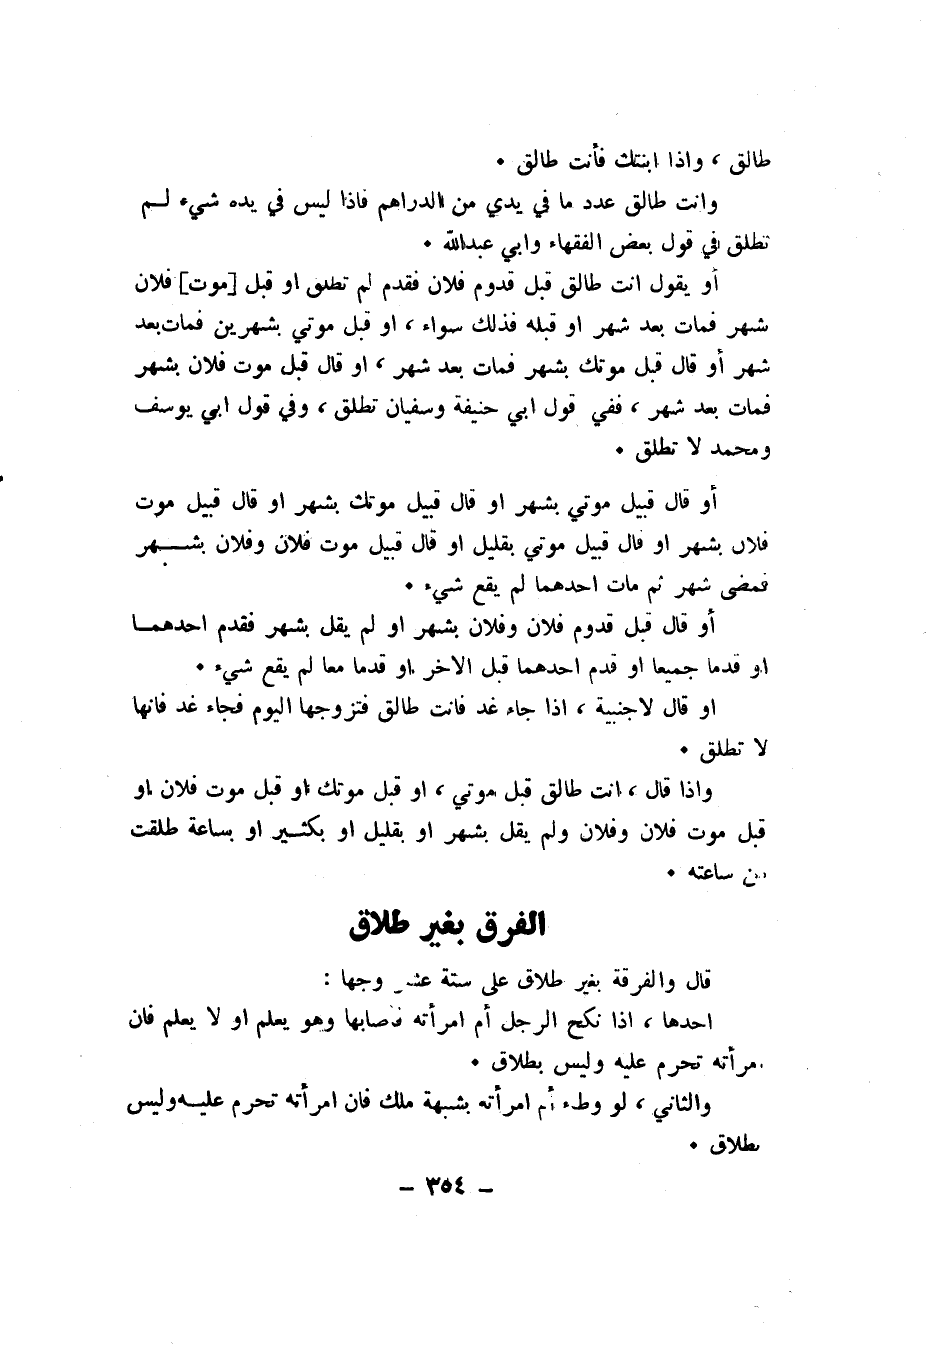 طالق ، واذا ابنتك فأنت طالق .
وانت طالق عدد ما في يدي من الدراهم فاذا ليس في يده شيء لـم
تطلق في قول بعض الفقهاء وابي عبدالله .
أو يقول انت طالق قبل قدوم فلان فقدم لم تطلق او قبل [موت] فلان
شهر فمات بعد شهر او قبله فذلك سواء ، او قبل موتي بشهرين فمات بعد
شهر أو قال قبل موتك بشهر فمات بعد شهر ، او قال قبل موت فلان بشهر
فمات بعد شهر ، ففي قول ابي حنيفة وسفيان تطلق ، وفي قول ابي يوسف
ومحمد لا تطلق .
أو قال قبيل موتي بشهر او قال قبيل موتك بشهر او قال قبيل موت
فلان بشهر او قال قبيل موتي بقليل او قال قبيل موت فلان وفلان بشـــهر
فمضى شهر ثم مات احدهما لم يقع شيء .
أو قال قبل قدوم فلان وفلان بشهر او لم يقل بشهر فقدم احدهمـا
او قدما جميعا او قدم احدهما قبل الاخر او قدما معا لم يقع شيء .
او قال لاجنبية ، اذا جاء غد فانت طالق فتزوجها اليوم فجاء غد فانها
لا تطلق .
واذا قال ، انت طالق قبل موتي ، او قبل موتك او قبل موت فلان او
قبل موت فلان وفلان ولم يقل بشهر او بقليل او بكثـير او بساعة طلقت
من ساعته .
الفرق بغير طلاق
قال والفرقة بغير طلاق على ستة عشر وجها :
احدها ، اذا نكح الرجل أم امرأته فأصابها وهو يعلم او لا يعلم فان
امرأته تحرم عليه وليس بطلاق .
والثاني ، لو وطء أم امرأته بشبهة ملك فان امرأته تحرم عليـه وليس
بطلاق .
– ٣٥٤ –